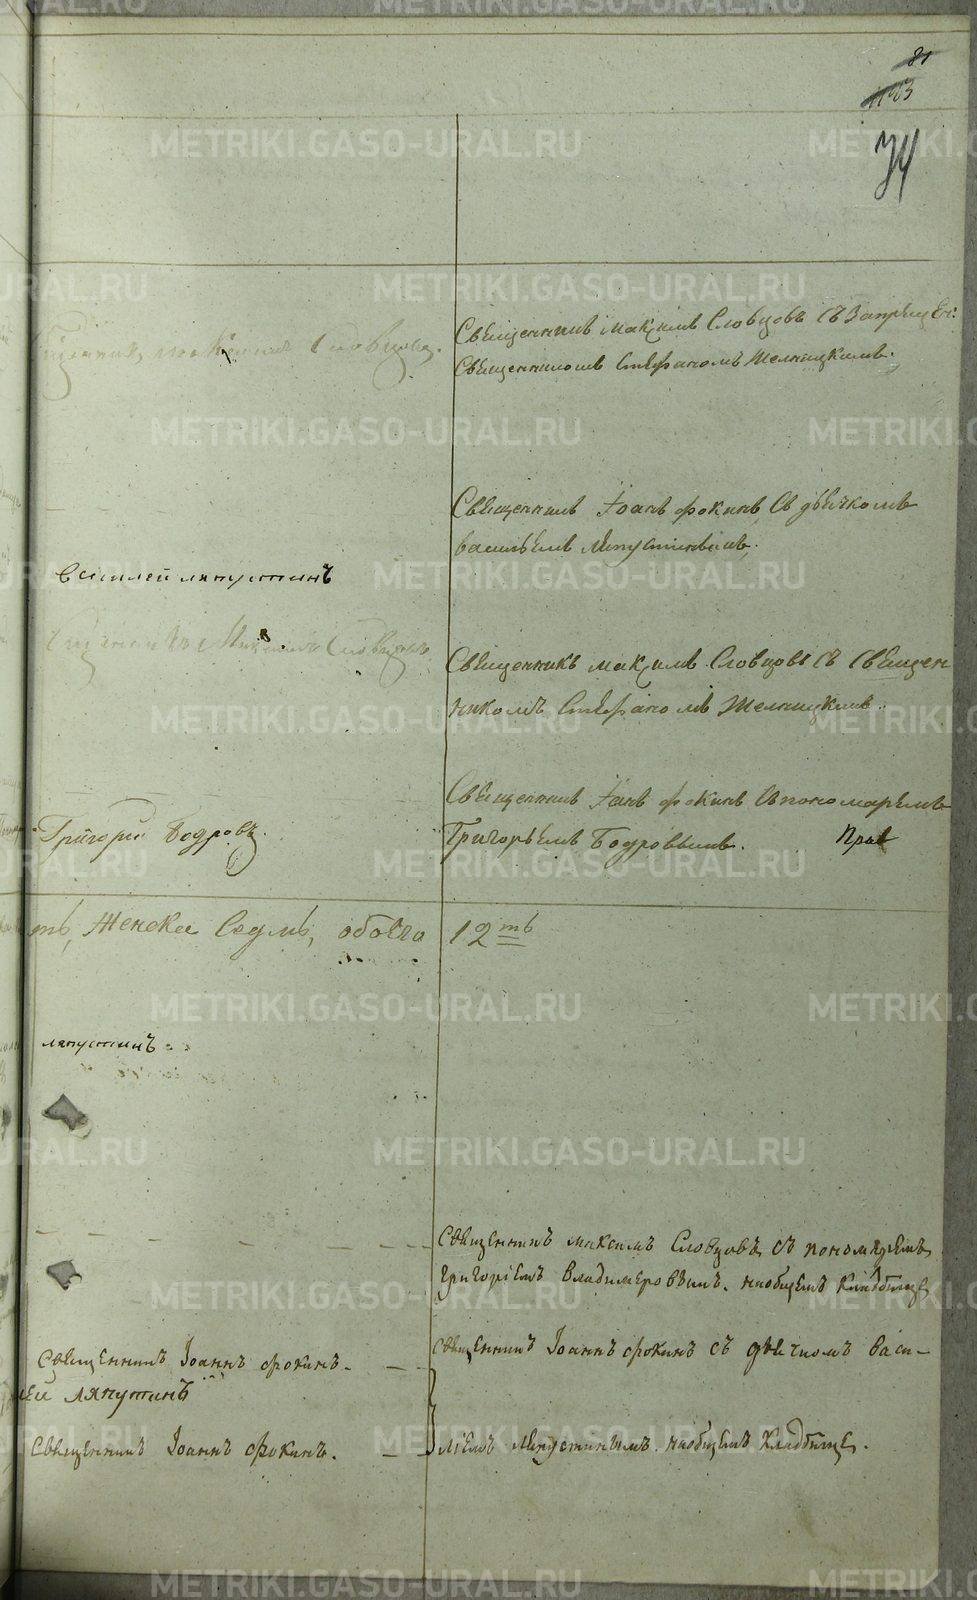 81
1143
74
Священникъ максимъ Словцовъ.
Священникъ максимъ Словцовъ съ Запрещен:
Священникомъ Стефаномъ Желницкимъ.
Священникъ Іоанъ фокинъ, Съ дьячкомъ
васильемъ Ляпустинымъ.
василей ляпустинъ
Священникъ Максимъ Словцовъ
Священникъ максимъ Словцовъ съ Священ
никомъ Стефаномъ Желницкимъ.
Священникъ Іоанъ фокинъ Спономаремъ
Григорьемъ Бодровымъ. Прав
Григорей Бодровъ.
ть, Женска Седмь, обоего 12ть
ляпустинъ
Священникъ максимъ Словцовъ съ пономаремъ
григоріемъ владимеровымъ. наобщемъ Кладбище
Священникъ Іоаннъ фокинъ съ дьячкомъ васи-
Священникъ Іоаннъ фокинъ.
лей ляпустинъ
Священникъ Іоаннъ фокинъ.
льемъ Ляпустинымъ. наобщемъ Кладбище.
METRIKI.GASO-URAL.RU